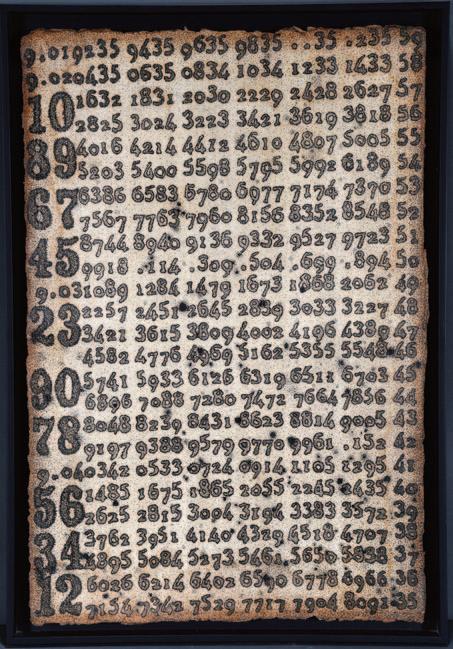 9.019235 9435 9635 9835 ..35 .235 59
9.020435 0635 0834 1034 1233 1433 58
10 1632 1831 2030 2229 2428 2627 57
2825 3024 3223 3421 3619 3818 56
89 4016 4214 4412 4610 4807 5005 55
5203 5400 5598 5795 5992 6189 54
67 6386 6583 6780 6977 7174 7370 53
7567 7763 7960 8156 8352 8548 52
45 8744 8940 9136 9332 9527 9723 51
9918 .114 .309 .504 .699 .894 50
9.031089 1284 1479 1673 1868 2062 49
23 2257 2451 2645 2839 3033 3227 48
3421 3615 3809 4002 4196 4389 47
4582 4776 4969 5162 5355 5548 46
90 5741 5933 6126 6319 6511 6703 45
6896 7088 7280 7472 7664 7856 44
78 8048 8239 8431 8623 8814 9005 43
9197 9388 9579 9770 9961 .152 42
.040342 0533 0724 0914 1105 1295 41
56 1485 1675 1865 2055 2245 2435 40
2625 2815 3004 3194 3383 3572 39
34 3762 3951 4140 4329 4518 4707 38
4895 5084 5273 5461 5650 5838 37
12 6026 6214 6402 6590 6778 6966 36
7154 7342 7529 7717 7904 8092 35